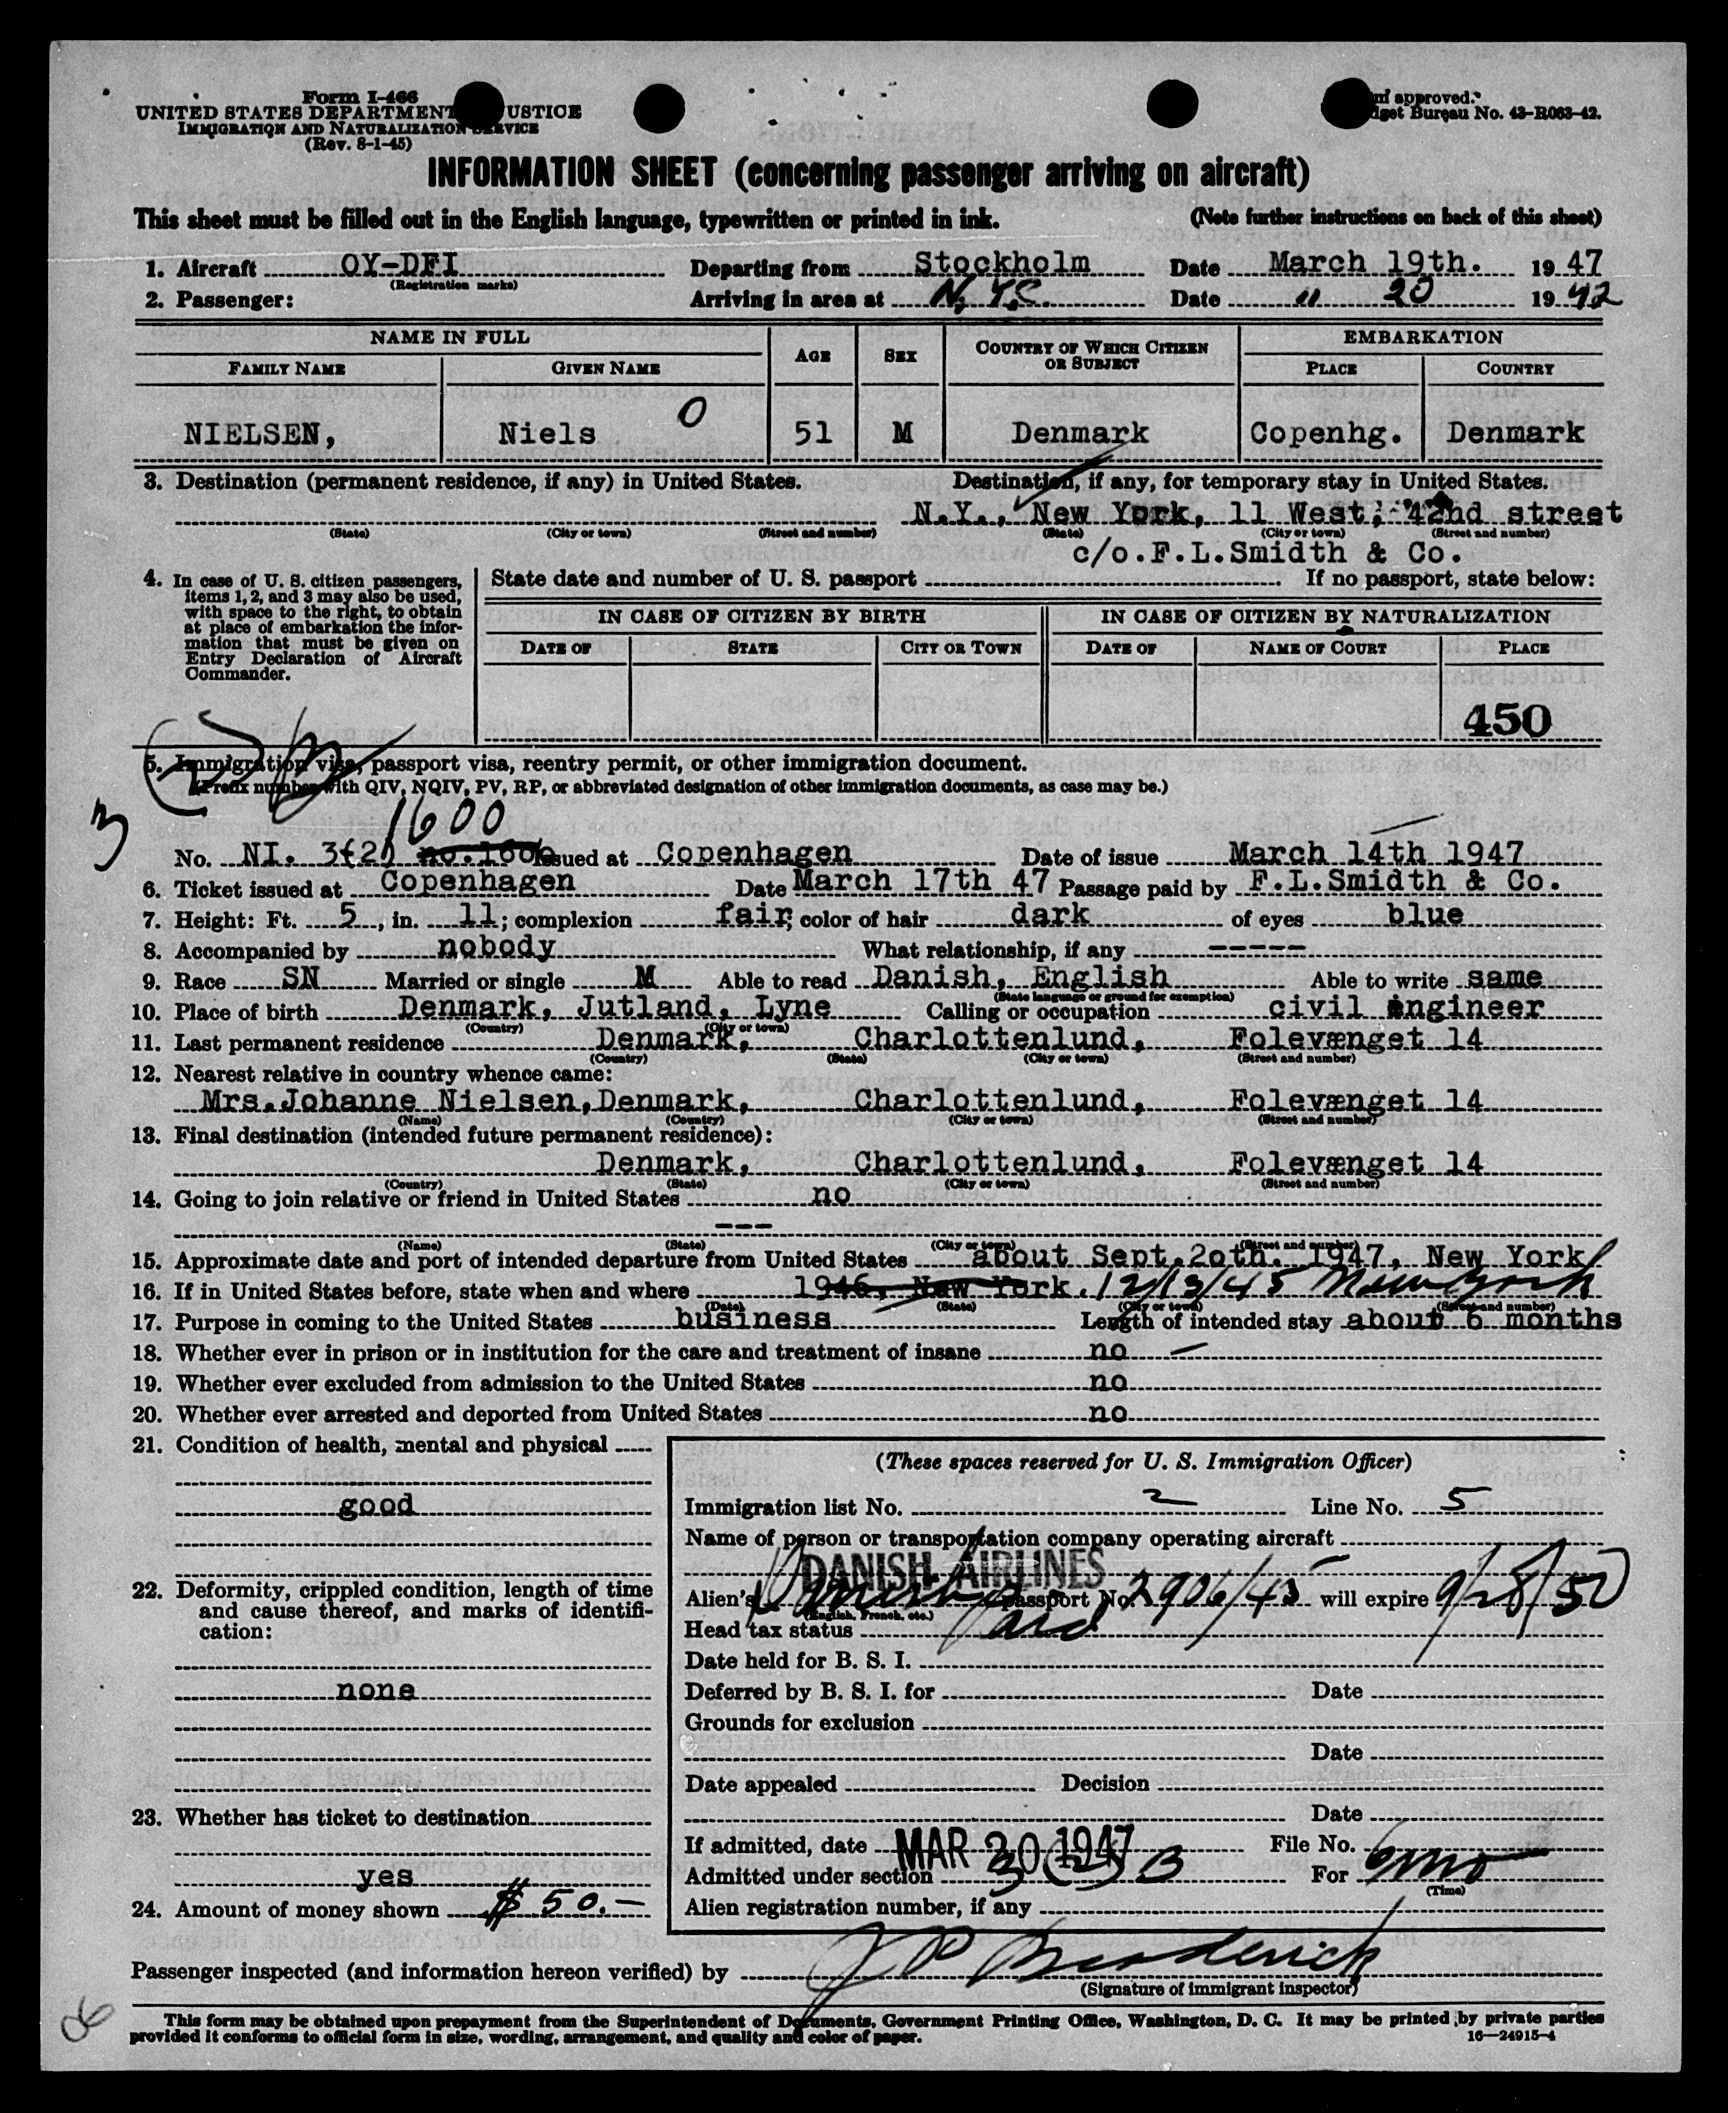 Form I-466
UNITED STATES DEPARTMENT USTICE
IMMIGRATION AND NATURALIZATION SERVICE
(Rev. 8-1-45)
approved.
dget Bureau No. 43-R063-42.
INFORMATION SHEET (concerning passenger arriving on aircraft)
This sheet must be filled out in the English language, typewritten or printed in ink. (Note further instructions on back of this sheet)
1. Aircraft OY-DFI Departing from Stockholm Date March 19th. 1947
(Registration marks)
2. Passenger: Arriving in area at N.Y.C. Date " 20 1942
NAME IN FULL AGE SEX COUNTRY OF WHICH CITIZEN OR SUBJECT EMBARKATION
FAMILY NAME GIVEN NAME PLACE COUNTRY
NIELSEN, Niels O 51 M Denmark Copenhg. Denmark
3. Destination (permanent residence, if any) in United States. Destination, if any, for temporary stay in United States.
N.Y., New York, 11 West, 42nd street
(State) (City or town) (Street and number) (State) (City or town) (Street and number)
c/o.F.L.Smidth & Co.
4. In case of U. S. citizen passengers, items 1, 2, and 3 may also be used, with space to the right, to obtain at place of embarkation the information that must be given on Entry Declaration of Aircraft Commander.
State date and number of U. S. passport If no passport, state below:
IN CASE OF CITIZEN BY BIRTH IN CASE OF CITIZEN BY NATURALIZATION
DATE OF STATE CITY OR TOWN DATE OF NAME OF COURT PLACE
450
5. Immigration visa, passport visa, reentry permit, or other immigration document.
(Prefix number with QIV, NQIV, PV, RP, or abbreviated designation of other immigration documents, as case may be.)
3
1600
No. NI. 3(2) no.1600 Issued at Copenhagen Date of issue March 14th 1947
6. Ticket issued at Copenhagen Date March 17th 47 Passage paid by F.L.Smidth & Co.
7. Height: Ft. 5, in. 11; complexion fair; color of hair dark of eyes blue
8. Accompanied by nobody What relationship, if any -----
9. Race SN Married or single M Able to read Danish, English Able to write same
(State language or ground for exemption)
10. Place of birth Denmark, Jutland, Lyne Calling or occupation civil engineer
(Country) (City or town)
11. Last permanent residence Denmark, Charlottenlund, Folevænget 14
(Country) (State) (City or town) (Street and number)
12. Nearest relative in country whence came:
Mrs.Johanne Nielsen, Denmark, Charlottenlund, Folevænget 14
(Name) (Country) (City or town) (Street and number)
13. Final destination (intended future permanent residence):
Denmark, Charlottenlund, Folevænget 14
(Country) (State) (City or town) (Street and number)
14. Going to join relative or friend in United States no
---
(Name) (State) (City or town) (Street and number)
15. Approximate date and port of intended departure from United States about Sept.20th. 1947, New York
16. If in United States before, state when and where 1946, New York. 12/13/45 New York
(Date) (State) (City or town) (Street and number)
17. Purpose in coming to the United States business Length of intended stay about 6 months
18. Whether ever in prison or in institution for the care and treatment of insane no —
19. Whether ever excluded from admission to the United States no
20. Whether ever arrested and deported from United States no
21. Condition of health, mental and physical
good
22. Deformity, crippled condition, length of time and cause thereof, and marks of identification:
none
23. Whether has ticket to destination
yes
24. Amount of money shown $ 50.—
(These spaces reserved for U. S. Immigration Officer)
Immigration list No. 2 Line No. 5
Name of person or transportation company operating aircraft
DANISH AIRLINES
Alien's Danish passport No. 2906/45 will expire 9/28/50
(English, French, etc.)
Head tax status paid
Date held for B. S. I.
Deferred by B. S. I. for Date
Grounds for exclusion
Date
Date appealed Decision
Date
If admitted, date MAR 20 1947 File No.
Admitted under section 3(2) B For 6 mo
(Time)
Alien registration number, if any
Passenger inspected (and information hereon verified) by J P Broderick
(Signature of immigrant inspector)
This form may be obtained upon prepayment from the Superintendent of Documents, Government Printing Office, Washington, D. C. It may be printed by private parties
provided it conforms to official form in size, wording, arrangement, and quality and color of paper. 16—24915-4